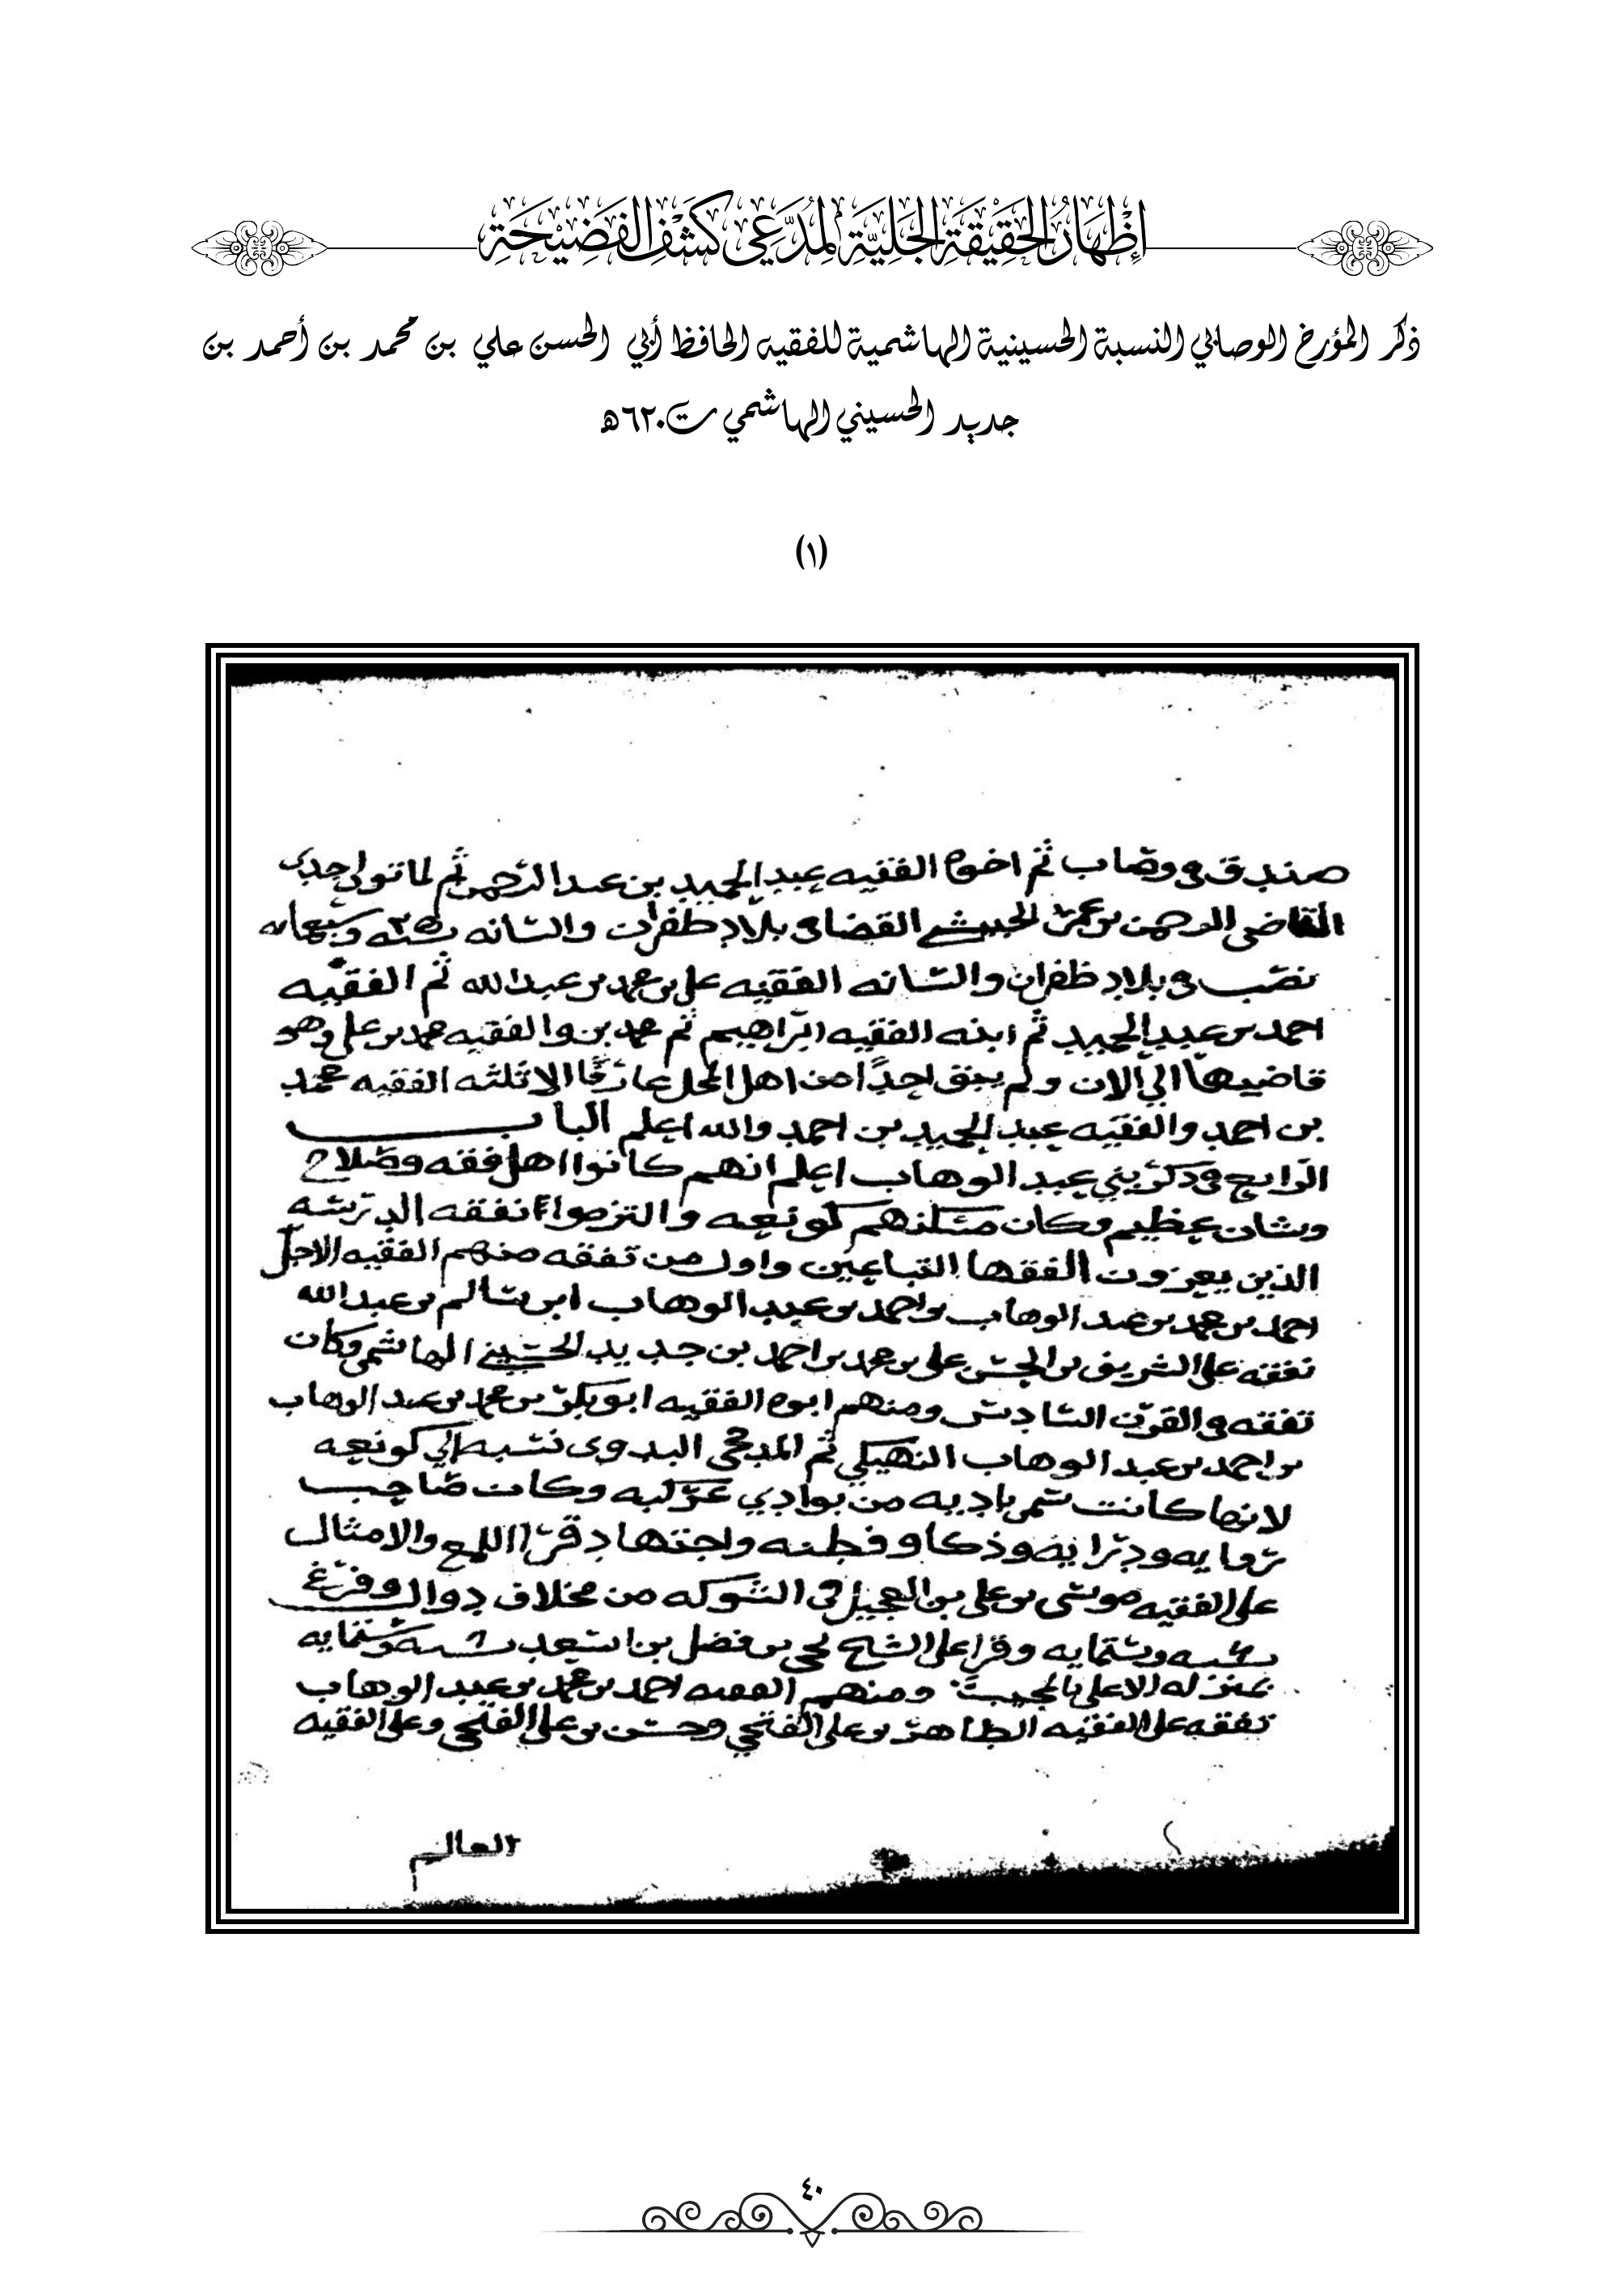 إِظْهَارُ الحَقِيْقَةِ الجَلِيَّةِ لِمُدَّعِي كَشْفِ الفَضِيْحَةِ
ذكر المؤرخ الوصابي النسبة الحسينية الهاشمية للفقيه الحافظ أبي الحسن علي بن محمد بن أحمد بن
جديد الحسيني الهاشمي ت٦٢٠هـ
(١)
صندق في وصاب ثم اخوه الفقيه عبد المجيد بن عبد الرحمن ثم لما تولى جدى
القاضي الرحمن بن عمر الحبيشي القضا في بلاد ظفران والشانه
نصب في بلاد ظفران والشانه الفقيه علي بن محمد بن عبد الله ثم الفقيه
احمد بن عبد المجيد ثم ابنه الفقيه ابراهيم ثم محمد بن والفقيه محمد بن علي وهو
قاضيها الى الان ولم يبق احدًا من اهل المحل عارفا الا ثلثه الفقيه محمد
بن احمد والفقيه عبد المجيد بن احمد والله اعلم الباب
الرابع في ذكر بني عبد الوهاب اعلم انهم كانوا اهل فقه وصلاح
وشان عظيم وكان مسكنهم كونعه والتزموا نفقه الدرسه
الذين يعزون الفقها التباعيين واول من تفقه منهم الفقيه الاجل
احمد بن محمد بن عبد الوهاب بن احمد بن عبد الوهاب ابن سالم بن عبد الله
تفقه على الشريف بن الحسن علي بن محمد بن احمد بن جديد الحسيني الهاشمي وكان
تفقه في القرن السادس ومنهم ابوه الفقيه ابو بكر بن محمد بن عبد الوهاب
بن احمد بن عبد الوهاب النهيكي ثم المذحجي البدوى نسبه الي كونعه
لانها كانت تسمى باديه من بوادي عركبه وكان صاحب
روايه ودرايه وذكا وفطنه واجتهاد قرا اللمع والامثال
على الفقيه موسى بن علي بن العجيل في الشوكه من مخلاف دوال وفرغ
سنه وستمايه وقرا على الشيخ يحيى بن فضل بن اسعد سنه وستمايه
بمنزله الاعلى ومنهم الفقيه احمد بن محمد بن عبد الوهاب
تفقه على الفقيه الطاهر بن علي الفتحي وحسن بن علي الفتحي وعلى الفقيه
العالم
٤٠